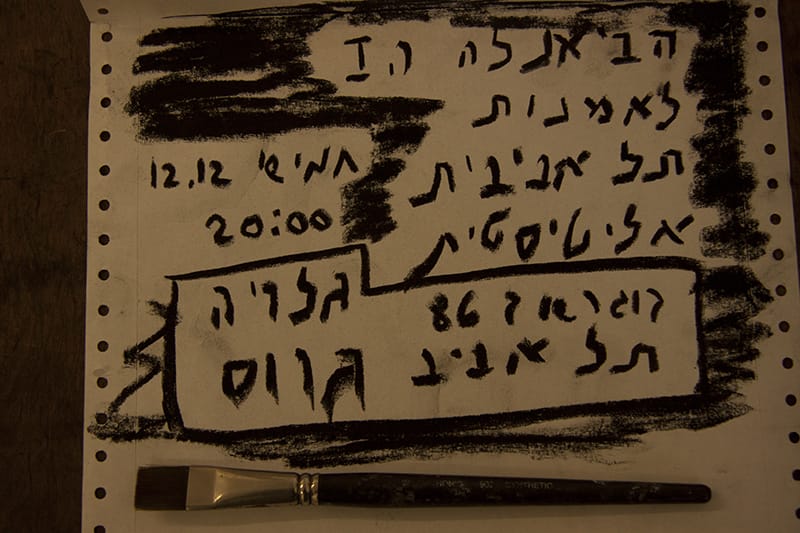 הביאנלה ה I
לאמנות
תל אביבית
אליטיסטית
חמישי 12.12
20:00
תל אביב
גלריה
גרוס
SYNTHETIC